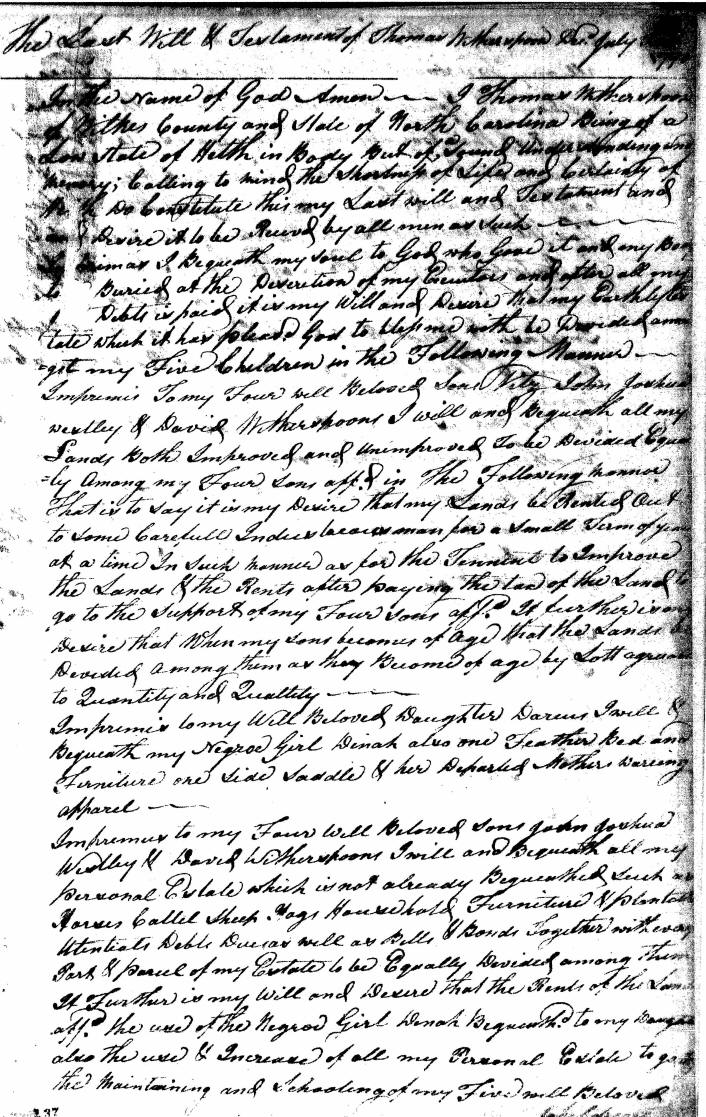 The Last Will & Testament of Thomas Witherspoon Decd July
In the Name of God Amen — I Thomas Witherspoon
of Wilkes County and State of North Carolina Being of a
Low State of Helth in Body But of Sound Understanding and
Memory; Calling to mind the Shortness of Life and Certainty of
Do Constitute this my Last will and Testament and
Desire it to be Receved by all men as Such —
I Bequeath my soul to God who Gave it and my Body
to Buried at the Descretion of my Executors and after all my
Debts is paid it is my Will and Desire that my Earthly Es
tate which it has pleasd God to bless me with be Devided amo
=gst my Five Children in the Following Manner —
Imprimis To my Four well Beloved Sons Vitz John Joshua
Westley & David Witherspoons I will and Bequeath all my
Lands Both Improved and Unimproved To be Devided Equa
=ly Among my Four sons affd in The Following manner
That is to say it is my Desire that my Lands be Rented Out
to some Carefull Industeous man for a Small Term of years
at a time In such manner as for the Tennent to Improve
the Lands & the Rents after paying the tax of the Land to
go to the support of my Four sons affd It further is my
Desire that When my sons becomes of Age that the Lands be
Devided among them as they Become of age by Lott agreeable
to Quantity and Quallity —
Imprimis to my Well Beloved Daughter Darcus I will &
Bequeath my Negroe Girl Dinah also one Feather Bed and
Furniture one Side Saddle & her Departed Mothers wareing
apparel —
Impremus to my Four Well Beloved Sons John Joshua
Westley & David Witherspoons I will and Bequeath all my
Personal Estate which is not already Bequeathed Such as
Horses Cattel Sheep Hogs Household Furniture & plantation
Utentials Debts Dues as well as Bills & Bonds Together with every
Part & parcel of my Estate to be Equally Devided among Them
It Further is my Will and Desire that the Rents of the Land
affd the use of the Negroe Girl Denah Bequeathd to my Daughter
also the use & Increase of all my Personal Estate to go to
the Maintaining and Schooling of my Five well Beloved
237